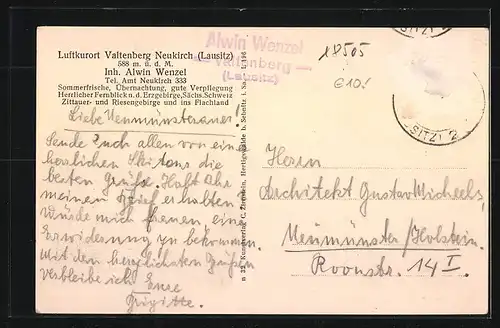 Luftkurort Valtenberg Neukirch (Lausitz)
588 m ü. d. M.
Inh. Alwin Wenzel
Tel. Amt Neukirch 333
Sommerfrische, Übernachtung, gute Verpflegung
Herrlicher Fernblick n. d. Erzgebirge, Sächs. Schweiz
Zittauer- und Riesengebirge und ins Flachland
Alwin Wenzel
Valtenberg
(Lausitz)
18505
€10.-
SITZ) 2
SITZ) 2
Liebe Neumünsteraner!
Sende Euch allen von einer
herrlichen Skitour die
besten Grüße. Habt Ihr
meinen Brief erhalten
Würde mich freuen eine
Erwiderung zu bekommen.
Mit den herzlichsten Grüßen
verbleibe ich Eure
Brigitte.
Herrn
Architekt Gustav Micheels,
Neumünster/Holstein.
Roonstr. 14 I.